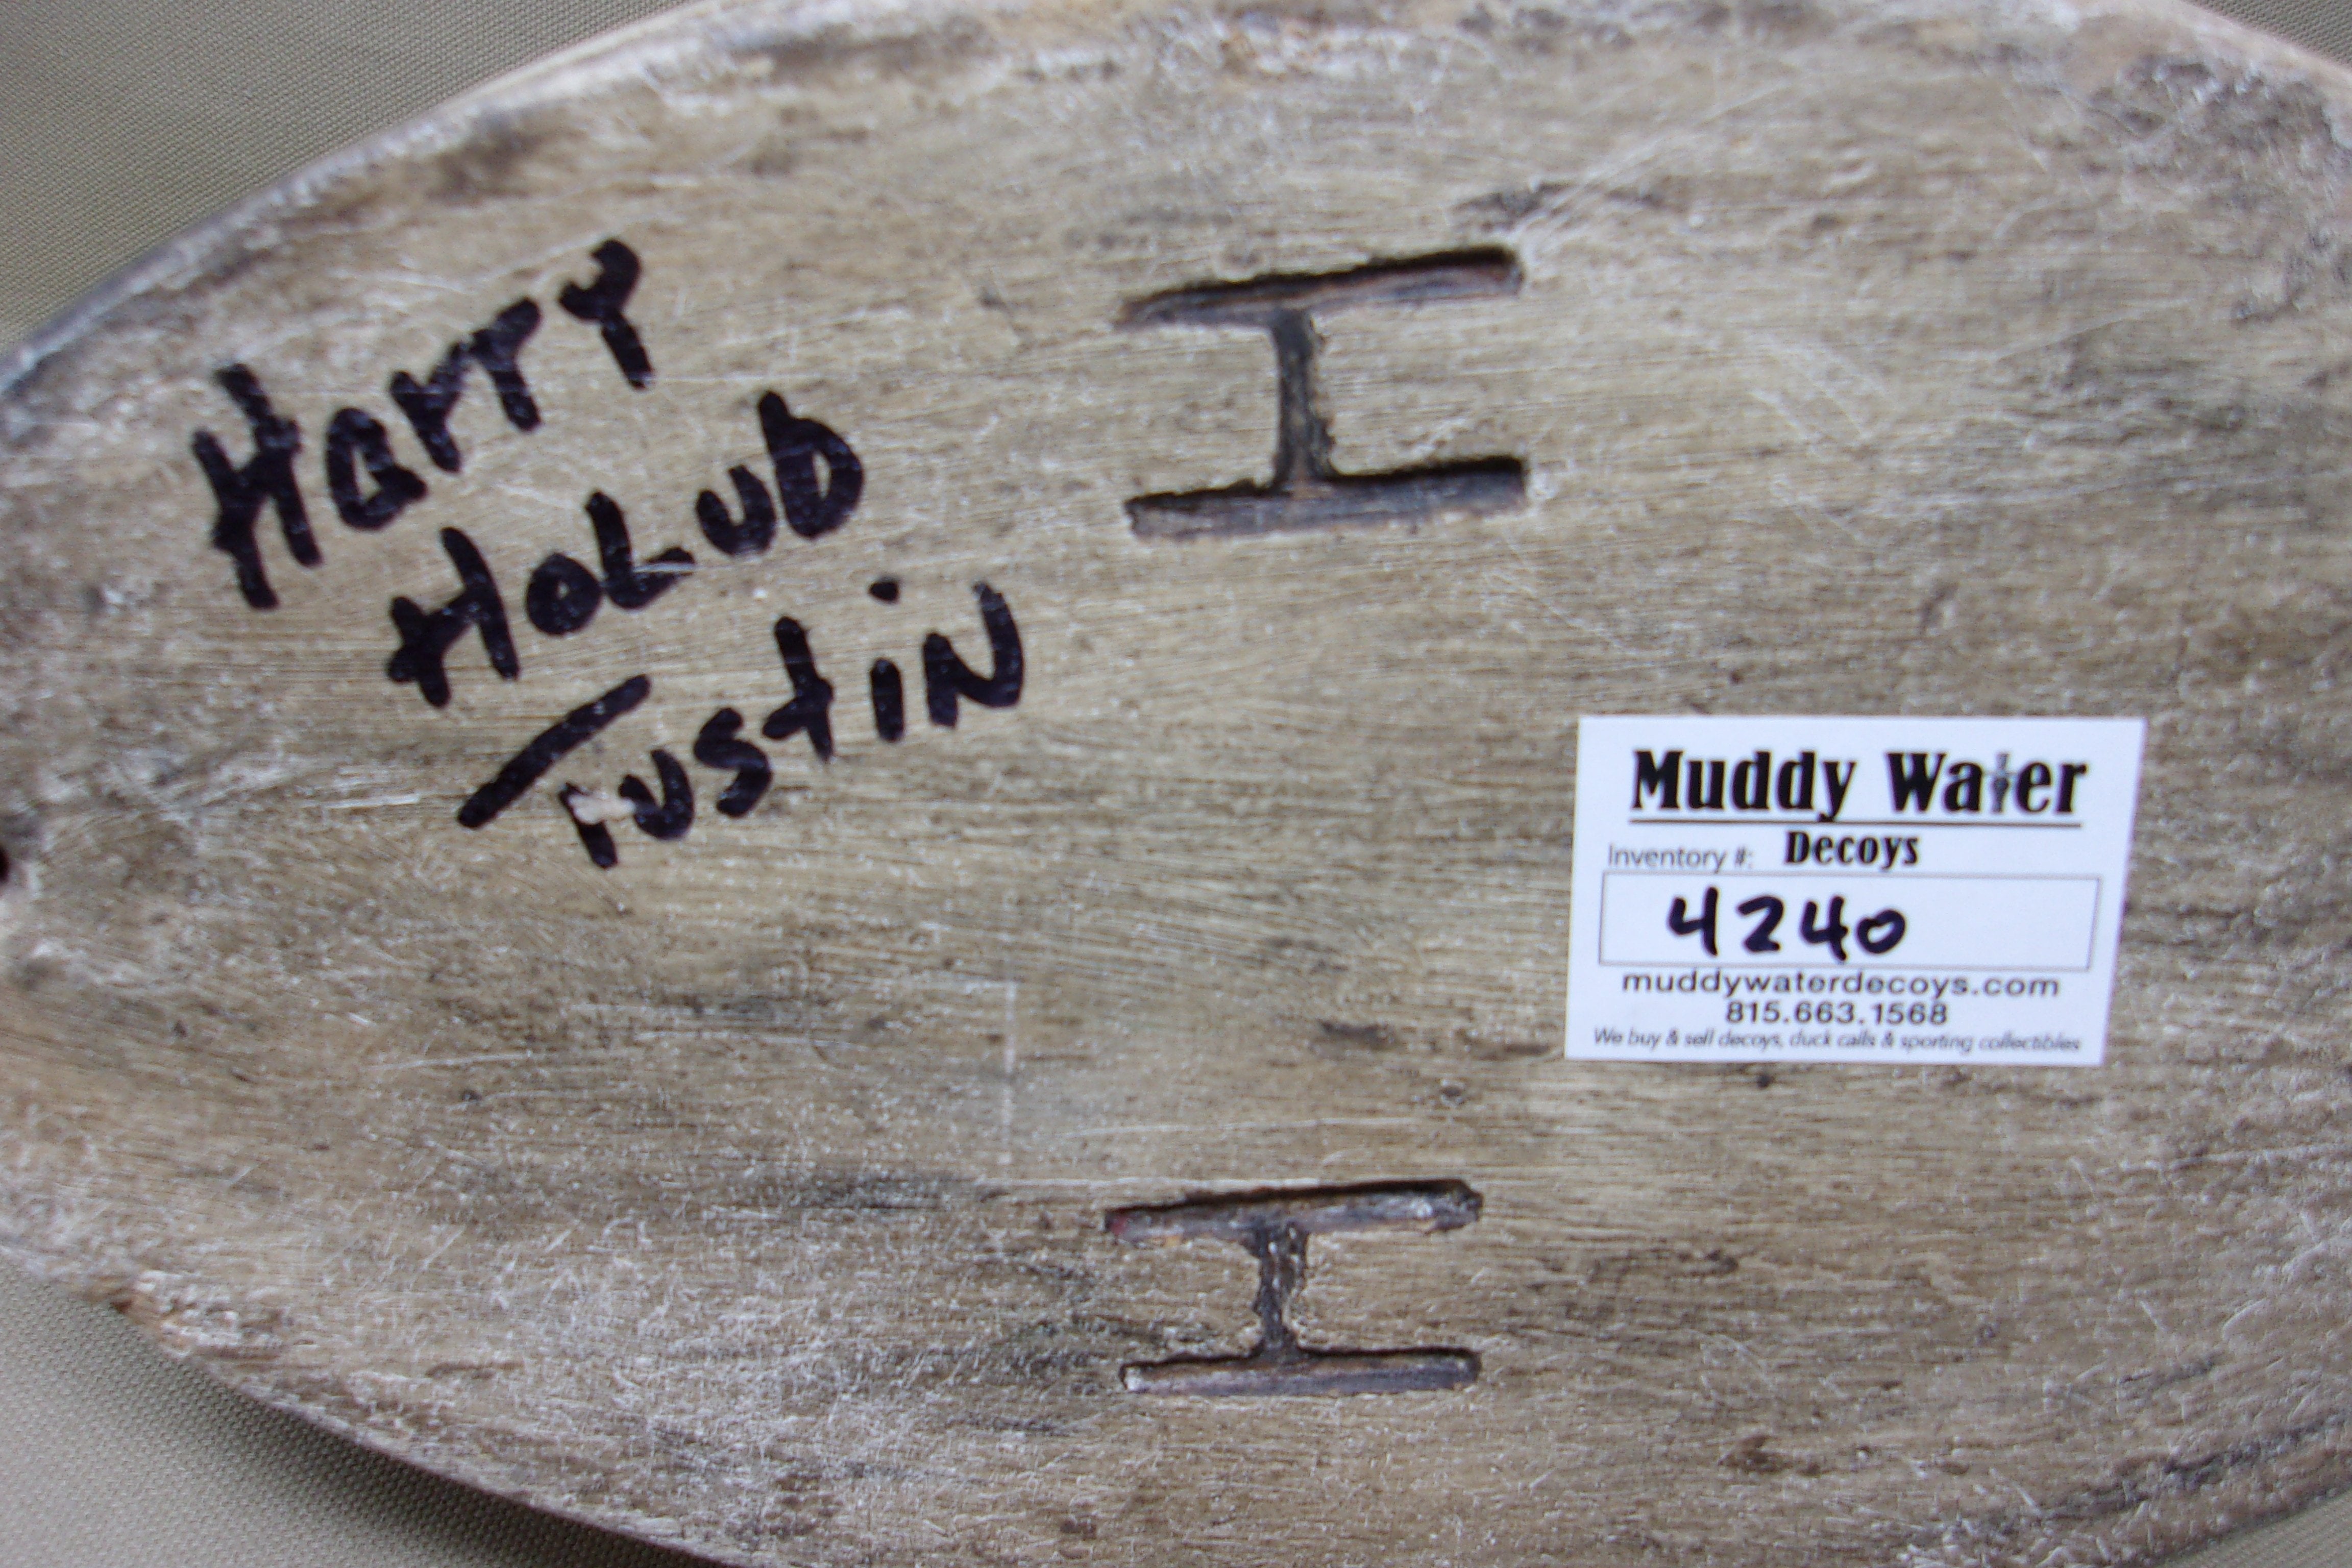 Harry
Holub
Tustin
H
H
Muddy Water
Decoys
Inventory #:
4240
muddywaterdecoys.com
815.663.1568
We buy & sell decoys, duck calls & sporting collectibles